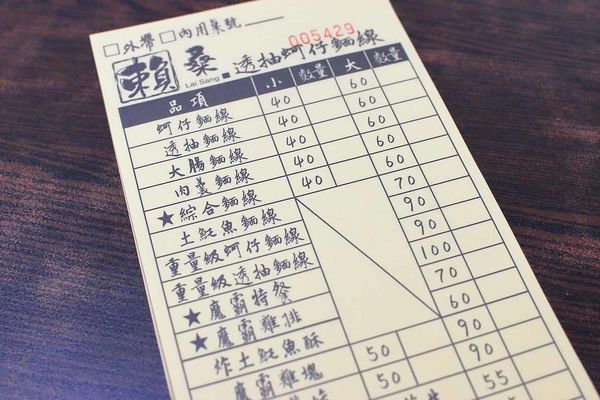 □外帶 □內用桌號
005429
賴桑 Lai Sang 透抽蚵仔麵線
品項 小 數量 大 數量
蚵仔麵線 40 60
透抽麵線 40 60
大腸麵線 40 60
肉羹麵線 40 60
★綜合麵線 40 70
土魠魚麵線 90
重量級蚵仔麵線 90
重量級透抽麵線 100
★魔霸特餐 70
★魔霸雞排 60
炸土魠魚酥 50 90
魔霸雞塊 50 90
55